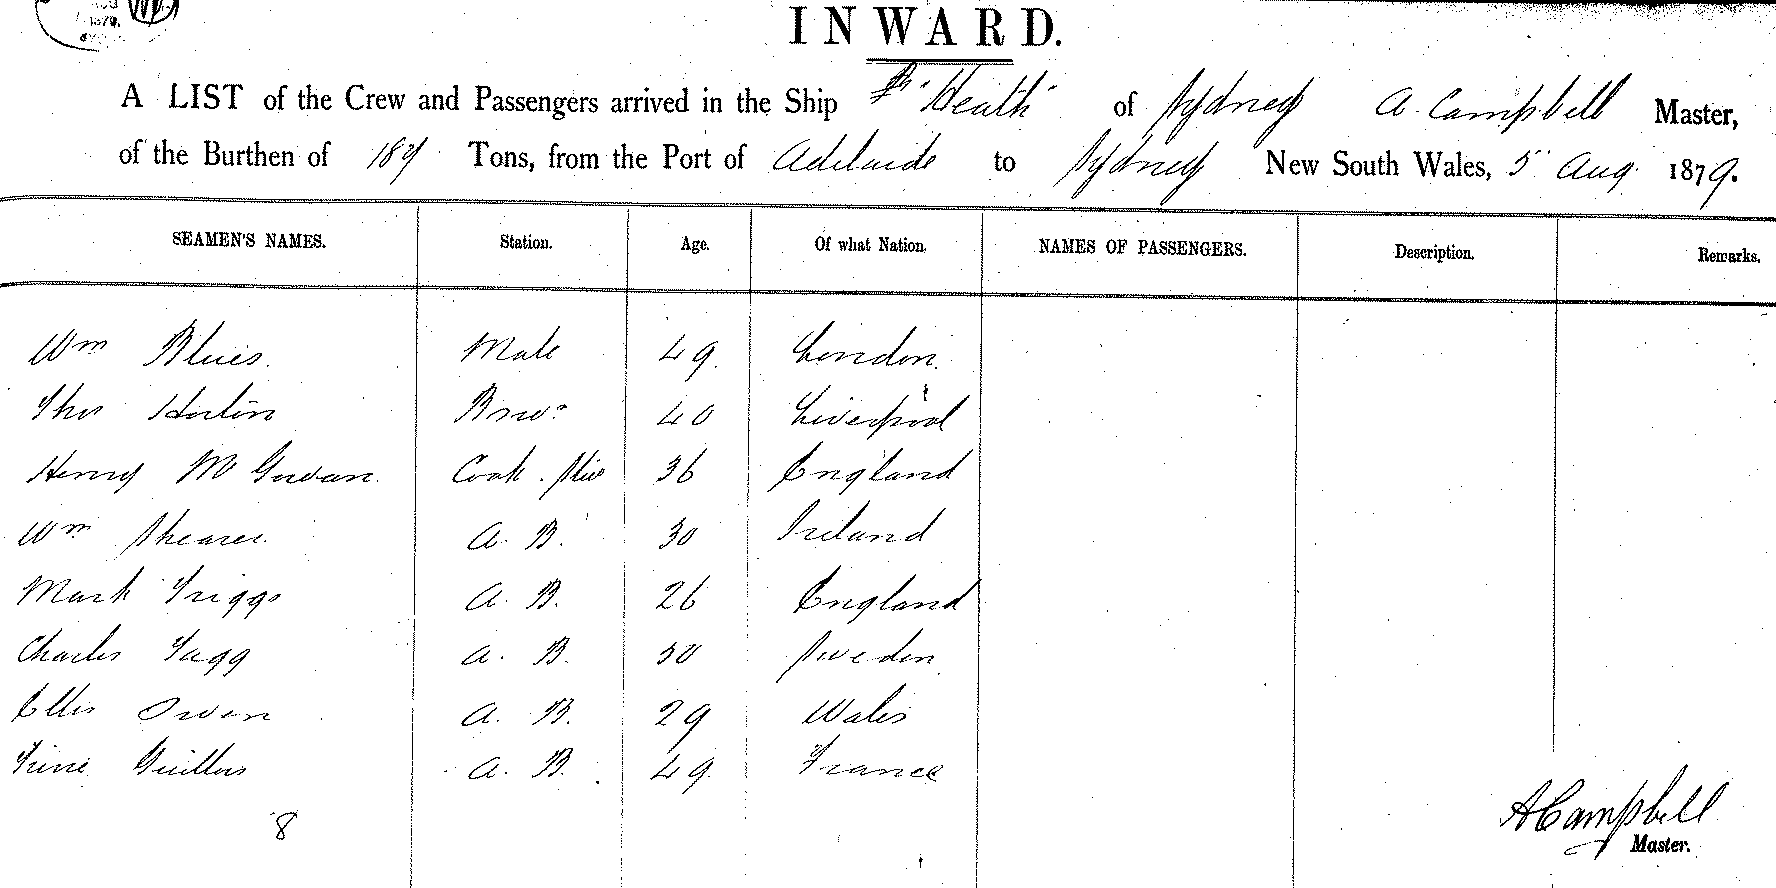 1879.
INWARD.
A LIST of the Crew and Passengers arrived in the Ship "Heath" of Sydney A. Campbell Master,
of the Burthen of Tons, from the Port of Adelaide to Sydney New South Wales, 5 Aug 1879.
SEAMEN'S NAMES. Station. Age. Of what Nation. NAMES OF PASSENGERS. Description. Remarks.
Wm Blues. Mate 49. London.
Thos Horton 40 Liverpool
Henry Mc Gowan Cook. 36 England
Wm Shearer A. B. 30 Ireland
Mark Triggs A. B. 26 England
Charles Tagg A. B. 30 Sweden
Ellis Owen A. B. 29 Wales
A. B. 49. France
8
A Campbell
Master.